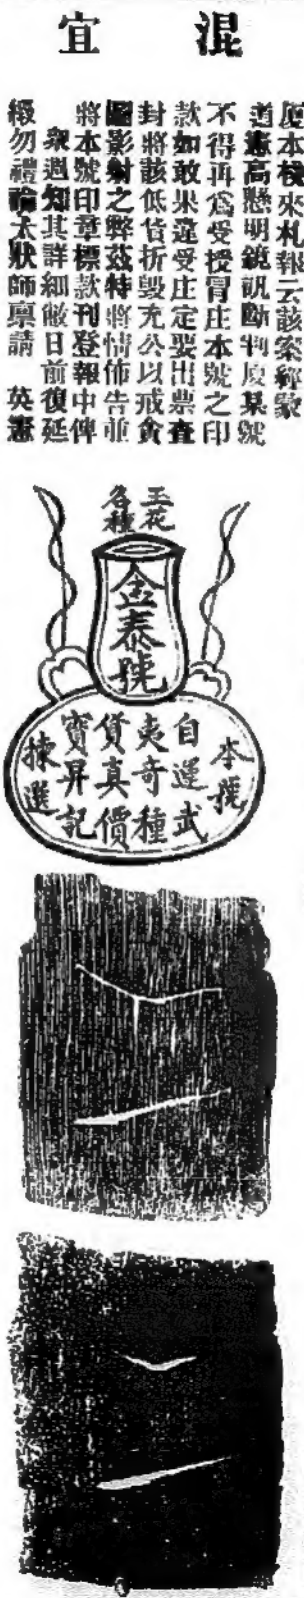 混宜
厦本棧來札報云該案經蒙
道憲高懸明鏡訊斷判厦某號
不得再爲受授冒庄本號之印
款如敢果違受庄定要出票查
封將該低貨折毀充公以戒貪
圖影射之弊茲特將情佈告並
將本號印章標款刊登報中俾
衆週知其詳細敝日前復延
緞勿禮論大狀師禀請 英憲
玉花
各種
金泰號
本號
自運武
夷奇種
貨真價
寶昇記
揀選